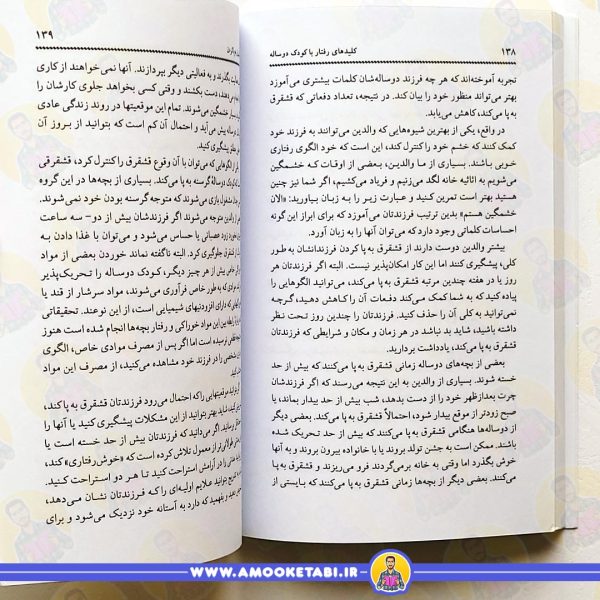 ۱۳۸
کلیدهای رفتار با کودک دوساله
تجربه آموخته‌اند که هر چه فرزند دوساله‌شان کلمات بیشتری می‌آموزد
بهتر می‌تواند منظور خود را بیان کند. در نتیجه، تعداد دفعاتی که قشقرق
به پا می‌کند، کاهش می‌یابد.
در واقع، یکی از بهترین شیوه‌هایی که والدین می‌توانند به فرزند خود
کمک کنند که خشم خود را کنترل کند، این است که خود الگوی رفتاری
خوبی باشند. بسیاری از ما والدین، بعضی از اوقات که خشمگین
می‌شویم به اثاثیه خانه لگد می‌زنیم و فریاد می‌کشیم، اگر شما نیز چنین
هستید بهتر است تمرین کنید و عبارت زیر را به زبان بیاورید: «الان
خشمگین هستم» بدین ترتیب فرزندتان می‌آموزد که برای ابراز این گونه
احساسات کلماتی وجود دارد که می‌توان آنها را به زبان آورد.
بیشتر والدین دوست دارند از قشقرق به پا کردن فرزندانشان به طور
کلی، پیشگیری کنند اما این کار امکان‌پذیر نیست. البته اگر فرزندتان هر
روز یا در هفته چندین مرتبه قشقرق به پا می‌کند، می‌توانید الگوهایی را
پیاده کنید که به شما کمک می‌کند دفعات آن را کاهش دهید، گرچه
نمی‌توانید به کلی آن را حذف کنید. اگر فرزندتان را چندین روز تحت نظر
داشته باشید، شاید بد نباشد در هر زمان و مکان و شرایطی که فرزندتان
قشقرق به پا می‌کند، یادداشت بردارید.
بعضی از بچه‌های دوساله زمانی قشقرق به پا می‌کنند که بیش از حد
خسته شوند. بسیاری از والدین به این نتیجه می‌رسند که اگر فرزندشان
چرت بعدازظهر خود را از دست بدهد، شب بیش از حد بیدار بماند، یا
صبح زودتر از موقع بیدار شود، احتمالاً قشقرق به پا می‌کند. بعضی دیگر
از دوساله‌ها هنگامی قشقرق به پا می‌کنند که بیش از حد تحریک شده
باشند. ممکن است به جشن تولد بروند یا با خانواده بیرون بروند و به آنها
خوش بگذرد اما وقتی به خانه برمی‌گردند فرو می‌ریزند و قشقرق به پا
می‌کنند. بعضی دیگر از بچه‌ها زمانی قشقرق به پا می‌کنند که بایستی از
۱۳۹
بگذارند و به فعالیتی دیگر بپردازند. آنها نمی‌خواهند از کاری
دست بکشند و وقتی کسی بخواهد جلوی کارشان را
می‌شوند. تمام این موقعیتها در روند زندگی عادی
پیش می‌آید و احتمال آن کم است که بتوانید از بروز آن
پیشگیری کنید.
الگوهایی که می‌توان با آن وقوع قشقرق را کنترل کرد، قشقرقی
کودک دوسالهٔ گرسنه به پا می‌کند. بسیاری از بچه‌ها در این گروه
مشغول بازی می‌شوند که متوجه گرسنه بودن خود نمی‌شوند.
والدین متوجه می‌شوند اگر فرزندشان بیش از دو- سه ساعت
عصبانی یا حساس می‌شود و می‌توان با غذا دادن به
قشقرق جلوگیری کرد. البته ناگفته نماند خوردن بعضی از مواد
خاص بیش از هر چیز دیگر، کودک دوساله را تحریک‌پذیر
که به طور خاص فرآوری می‌شوند، مواد سرشار از قند یا
که دارای افزودنیهای شیمیایی است، از این نوعند. تحقیقاتی
این مواد خوراکی و رفتار بچه‌ها انجام شده است هنوز
نرسیده است اما اگر پس از مصرف موادی خاص، الگوی
را در فرزند خود مشاهده می‌کنید، از مصرف آن
موقعیتهایی را که احتمال می‌رود فرزندتان قشقرق به پا کند،
شاید بهتر بتوانید از این مشکلات پیشگیری کنید یا آنها را
اگر می‌دانید که فرزندتان بیش از حد خسته است یا
طولانی‌تر از معمول تلاش کرده است که «خوش‌رفتاری» کند،
را در آرامش استراحت کنید تا هر دو استراحت کنید.
بتوانید علایم اولیه‌ای را که فرزندتان نشان می‌دهد،
و بفهمید که دارد به آستانه خود نزدیک می‌شود و برای
WWW.AMOOKETABI.IR